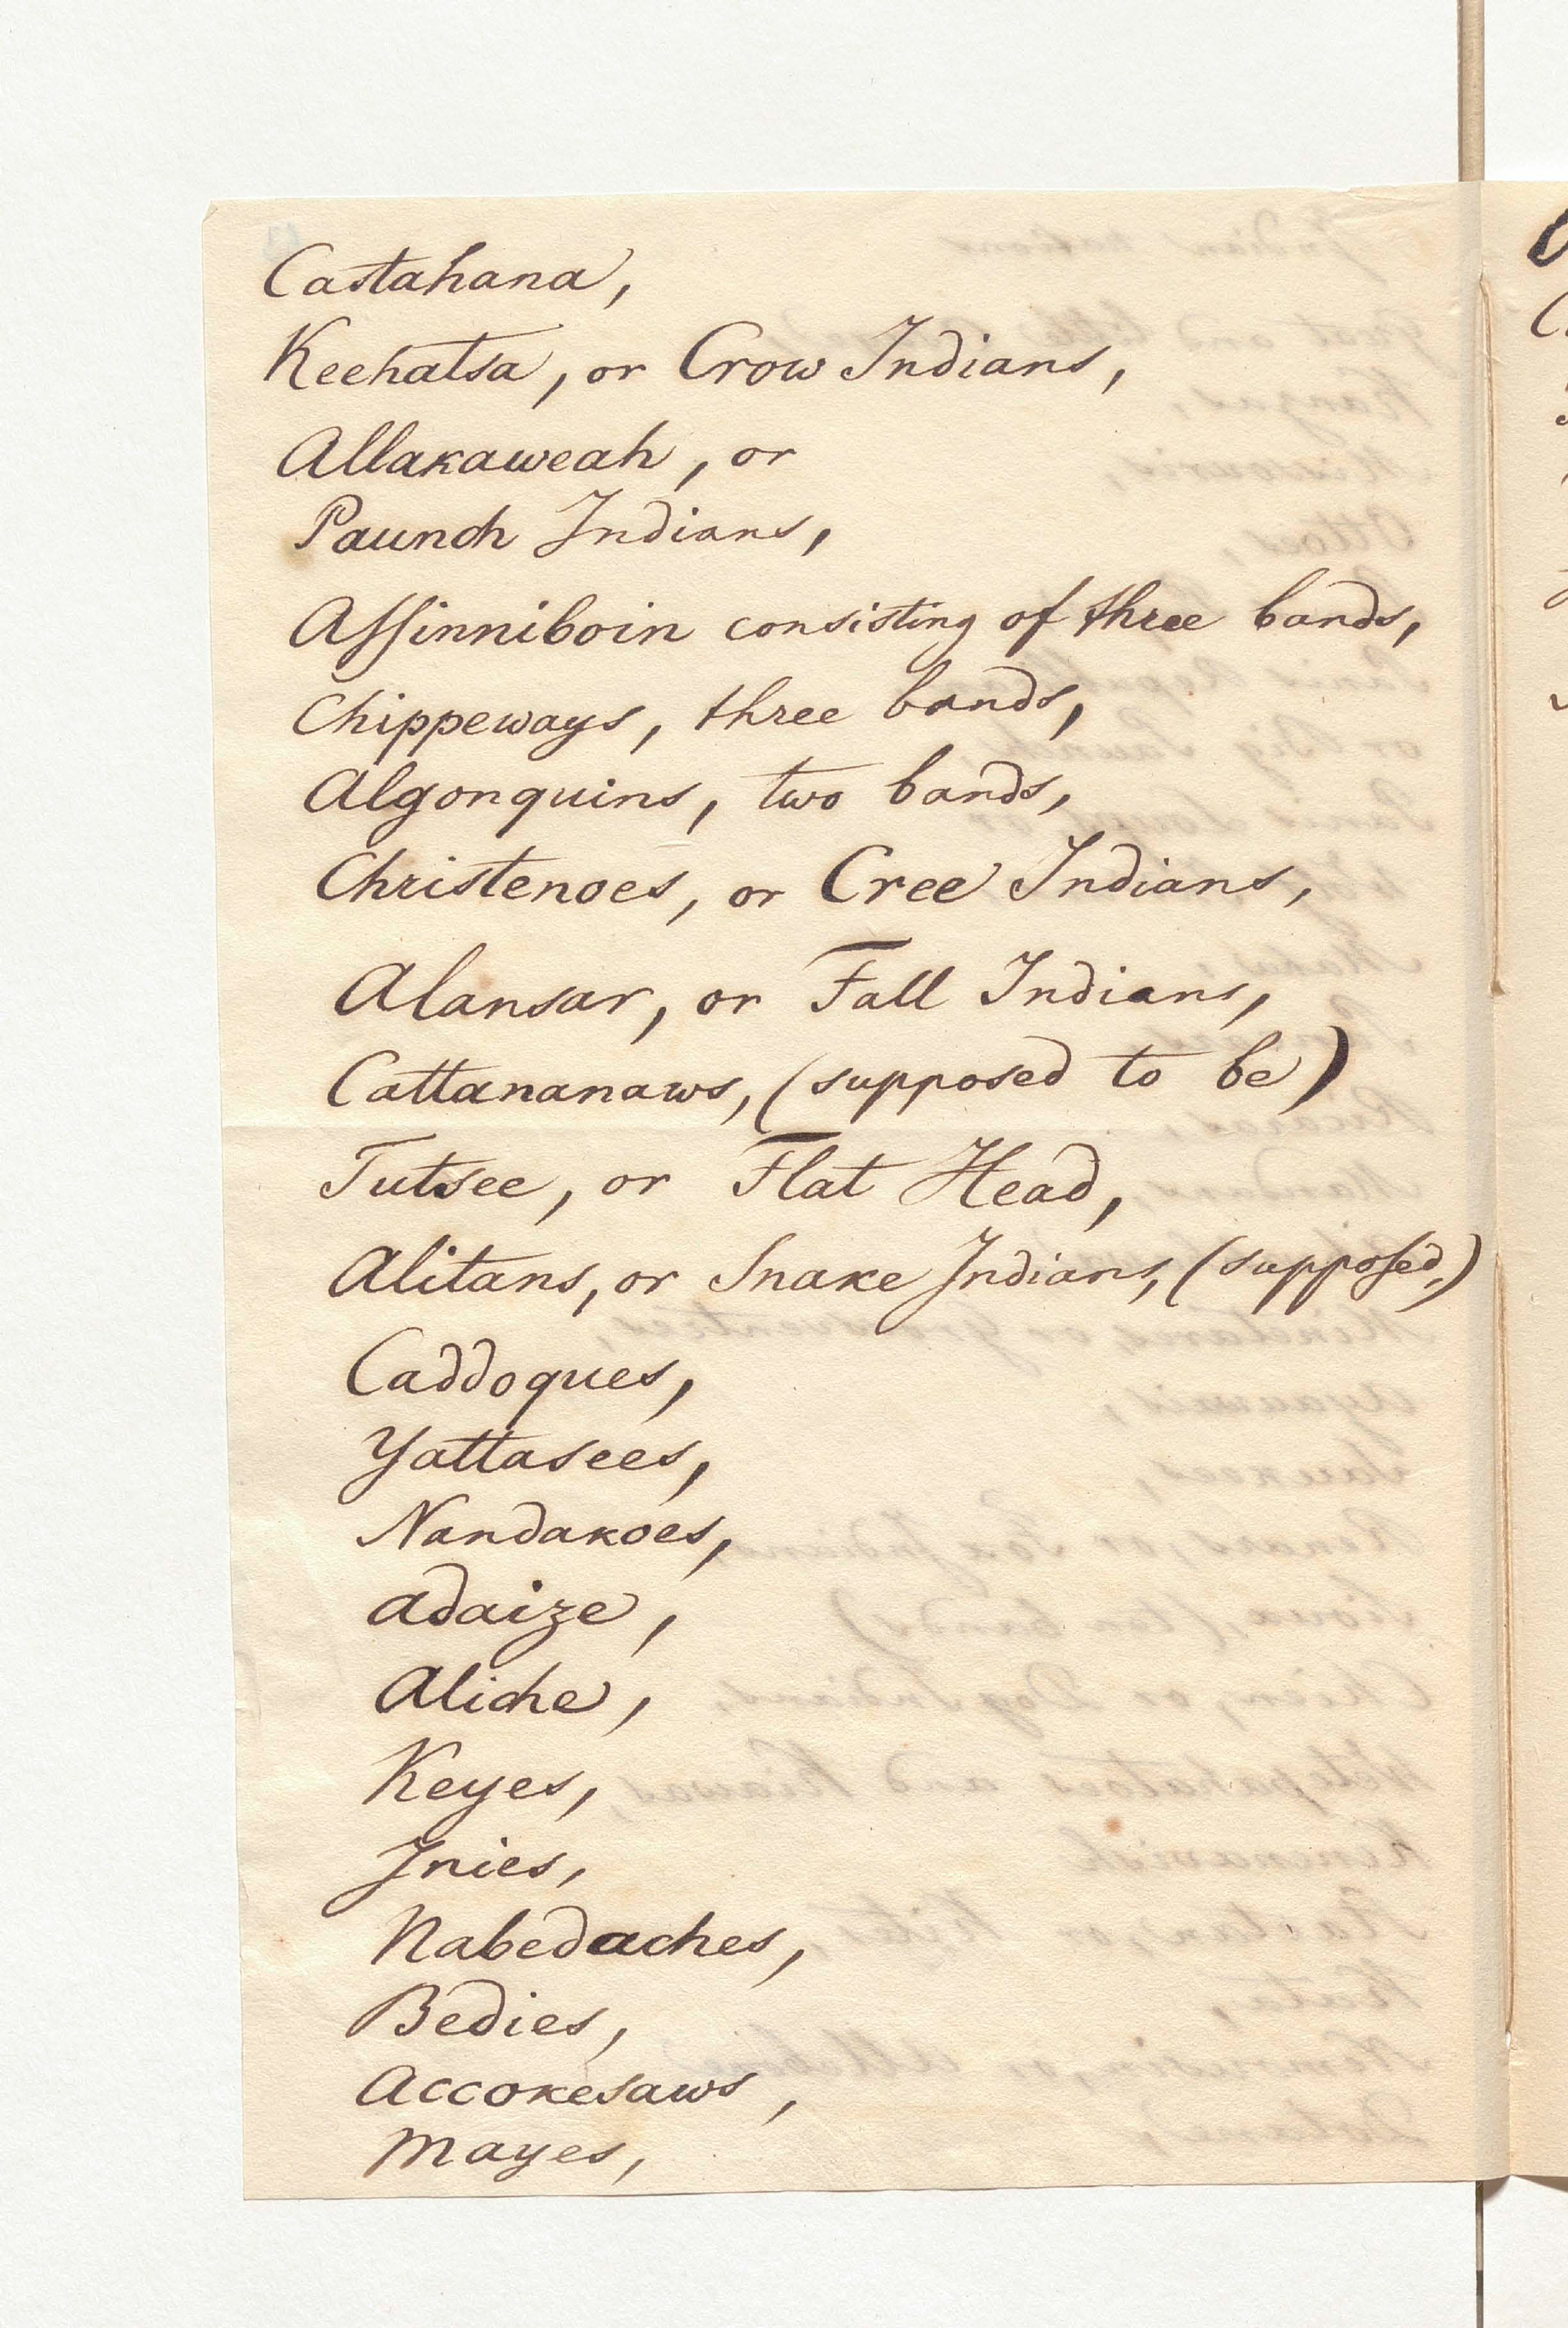 Castahana,
Keehatsa, or Crow Indians,
Allakaweah, or
Paunch Indians,
Assinniboin consisting of three bands,
Chippeways, three bands,
Algonquins, two bands,
Christenoes, or Cree Indians,
Alansar, or Fall Indians,
Cattananaws, (supposed to be)
Tutsee, or Flat Head,
Alitans, or Snake Indians, (supposed,)
Caddoques,
Yattasees,
Nandakoes,
Adaize,
Aliche,
Keyes,
Inies,
Nabedaches,
Bedies,
Accokesaws,
Mayes,